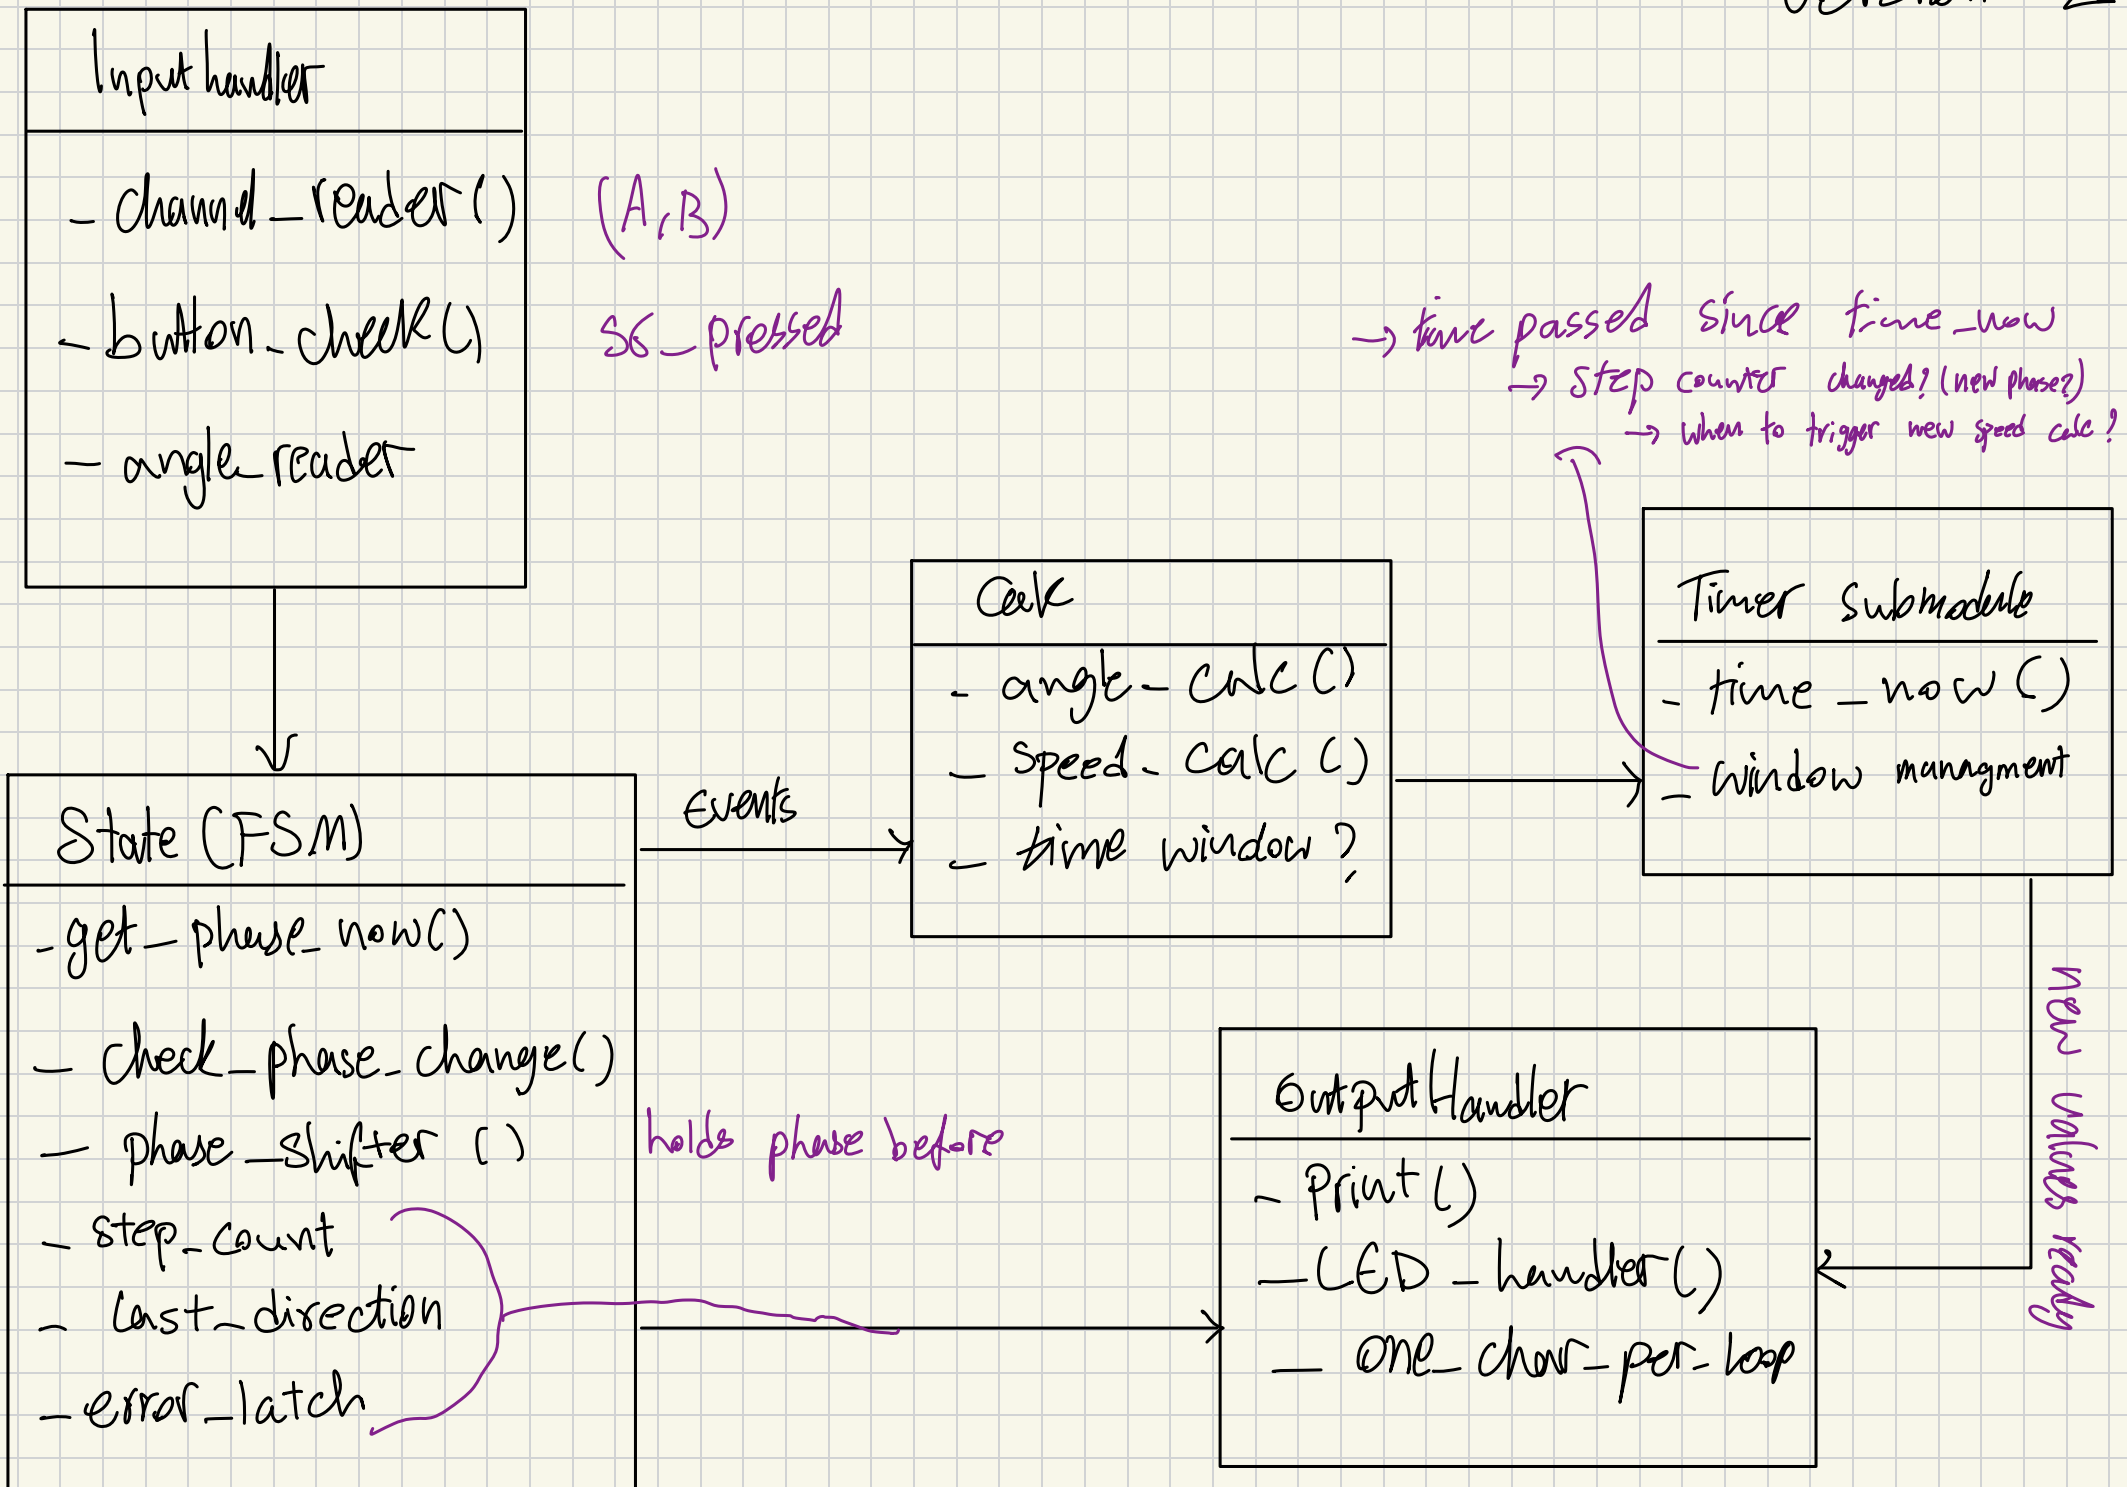 Version 2
Inputhandler
- channel_reader() (A,B)
- button_check() S6_pressed
- angle_reader
→ time passed since time_now
→ step counter changed? (new phase?)
→ when to trigger new speed calc?
Calc
- angle_calc()
- speed_calc()
- time window?
Timer submodule
- time_now()
- window managment
State (FSM)
- get_phase_now()
- check_phase_change()
- phase_shifter () holds phase before
- step_count
- last_direction
- error_latch
Events
OutputHandler
- print()
- LED_handler()
- one_char_per_loop
new values ready